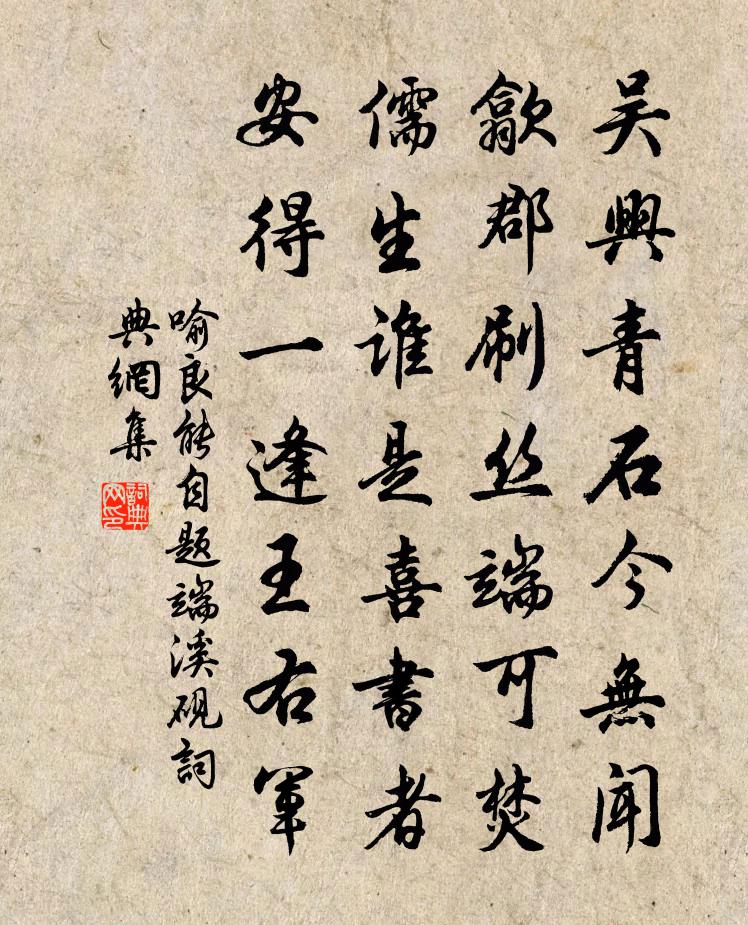 吴興青石今無聞
歙郡刷丝端可焚
儒生谁是喜書者
安得一逢王右軍
喻良能自题端溪砚詞
典網集
詞典網印